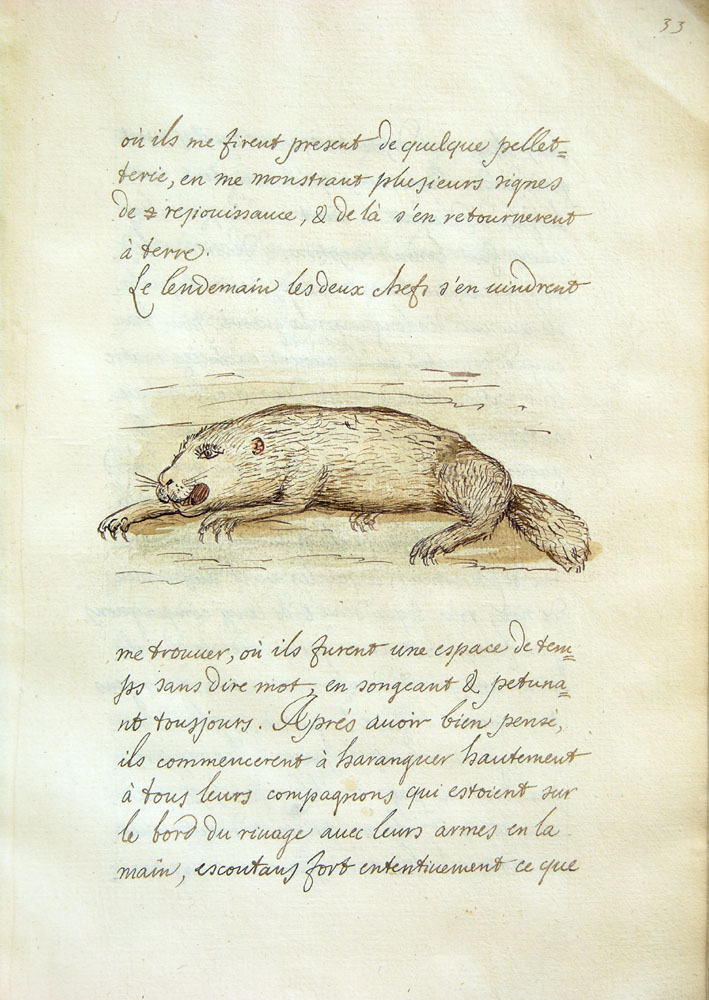 33
où ils me firent present de quelque pellet=
terie, en me monstrant plusieurs signes
de & rejouissance, & de là s'en retournerent
à terre.
Le lendemain les deux chefs s'en uindrent
me trouuer, où ils furent une espace de tem=
ps sans dire mot, en songeant & petuna=
nt tousjours. Aprés auoir bien pensé,
ils commencerent à haranguer hautement
à tous leurs compagnons qui estoient sur
le bord du riuage auec leurs armes en la
main, escoutans fort ententiuement ce que